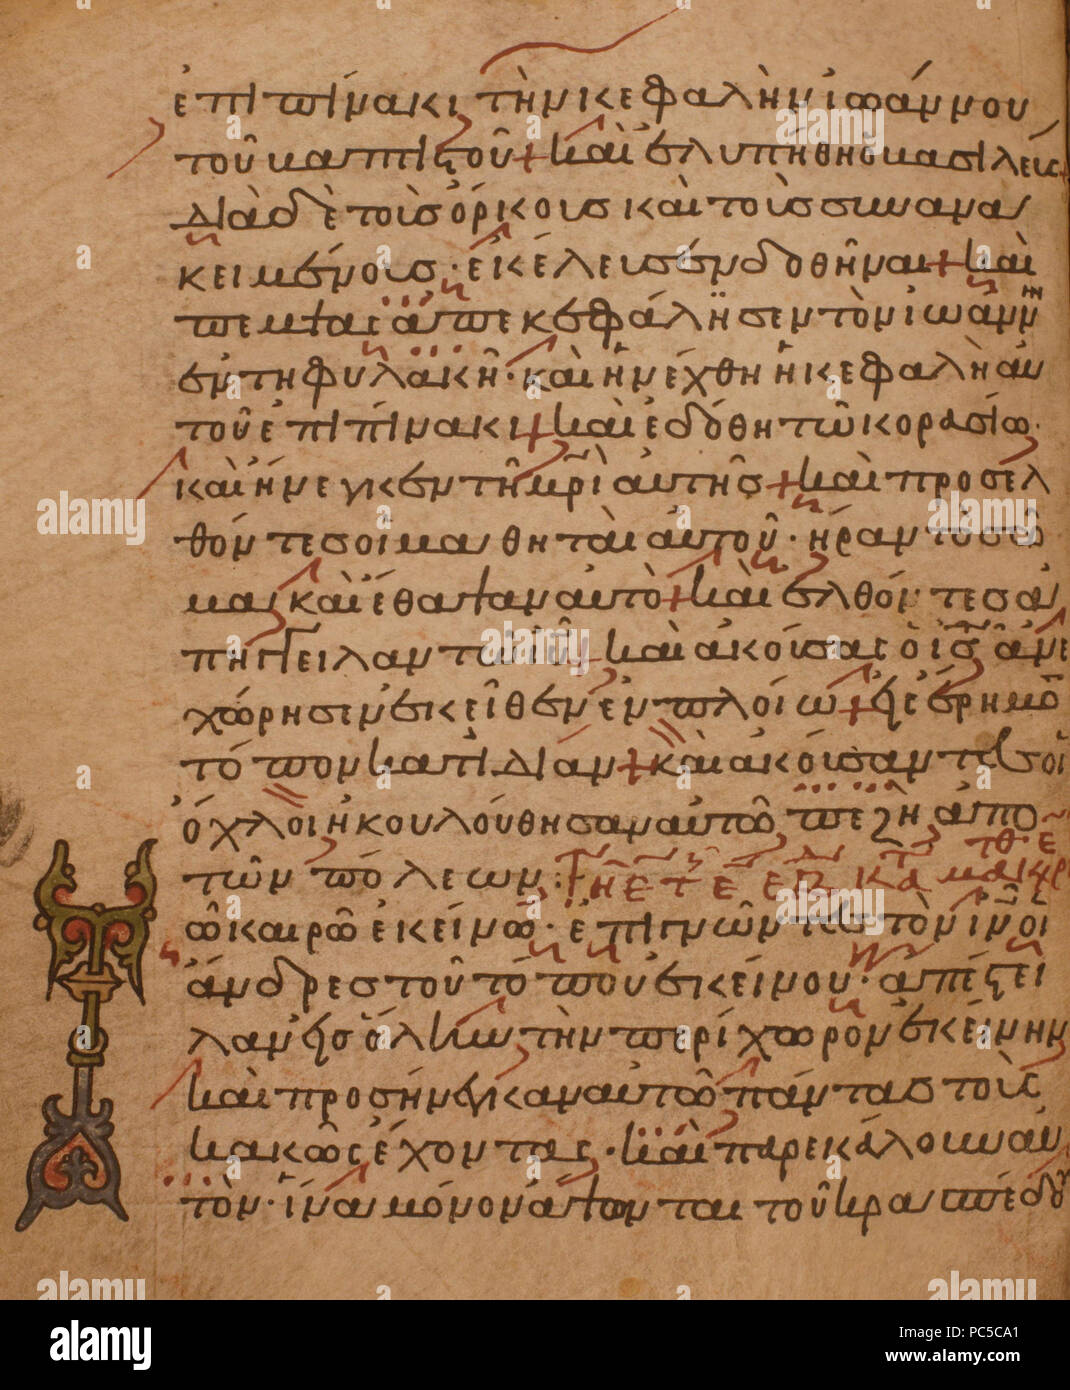 ἐπὶ πίνακι τὴν κεφαλὴν ἰωάννου
τοῦ βαπτιστοῦ + καὶ ἐλυπήθη ὁ βασιλεύς +
διὰ δὲ τοὺς ὅρκους καὶ τοὺς συνανα
κειμένους · ἐκέλευσεν δοθῆναι + καὶ
πέμψας ἀπεκεφάλησεν τὸν ἰωάνν
ἐν τῆ φυλακῆ · καὶ ἠνέχθη ἡ κεφαλὴ αὐ
τοῦ ἐπὶ πίνακι + καὶ ἐδόθη τῶ κορασίω ·
καὶ ἤνεγκεν τῆ μρὶ αὐτῆς + καὶ προσελ
θόντες οἱ μαθηταὶ αὐτοῦ · ἦραν τὸ σῶ
μα καὶ ἔθαψαν αὐτὸ + καὶ ἐλθόντες ἀ
πήγγειλαν τῶ ἰῦ + καὶ ἀκούσας ὁ ἰς ἀνε
χώρησεν ἐκεῖθεν ἐν πλοίω + εἰς ἔρημον
τόπον κατιδίαν + καὶ ἀκούσαντες οἱ
ὄχλοι ἠκολούθησαν αὐτῶ πεζῆ ἀπὸ
τῶν πόλεων :
ῶ καιρῶ ἐκείνω · ἐπιγνῶντες τὸν ἰν οἱ
ἄνδρες τοῦ τόπου ἐκείνου · ἀπέστει
λαν εἰς ὅλην τὴν περίχωρον ἐκείνην
καὶ προσήνεγκαν αὐτῶ πάντας τοὺς
κακῶς ἔχοντας · καὶ παρεκάλουν αὐ
τὸν · ἵνα μόνον ἅψωνται τοῦ κρασπέδου
alamy
Image ID: PC5CA1
www.alamy.com